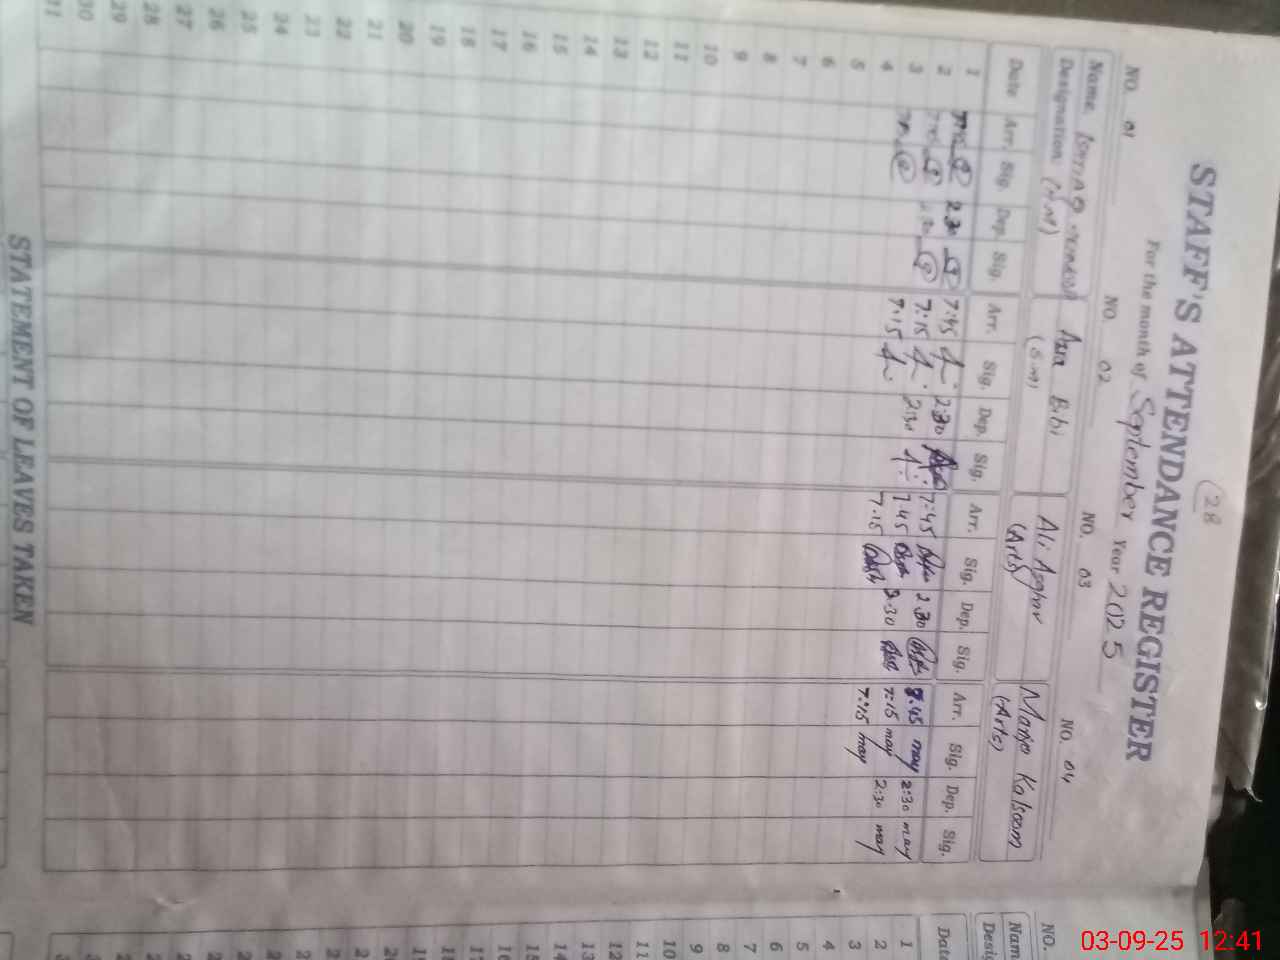 28
STAFF'S ATTENDANCE REGISTER
For the month of September Year 2025
NO. 01 NO. 02 NO. 03 NO. 04
Name Asia Bibi Ali Asghar Kalsoom
Designation (H.M) (S.M) (Arts) (Arts)
Date Arr. Sig. Dep. Sig. Arr. Sig. Dep. Sig. Arr. Sig. Dep. Sig. Arr. Sig. Dep. Sig.
1 2.30 7:45 2:30 7:45 2.30 7.45 may 2:30 may
2 7:15 2:30 7.45 2:30 7:15 may 2:30 may
3 7.15 7.15 7:15 may
4
5
6
7
8
9
10
11
12
13
14
15
16
17
18
19
20
21
22
23
24
25
26
27
28
29
30
31
STATEMENT OF LEAVES TAKEN
NO.
Nam
Desig
Date
1
2
3
4
5
6
7
8
9
10
11
12
13
14
15
16
17
18
03-09-25 12:41